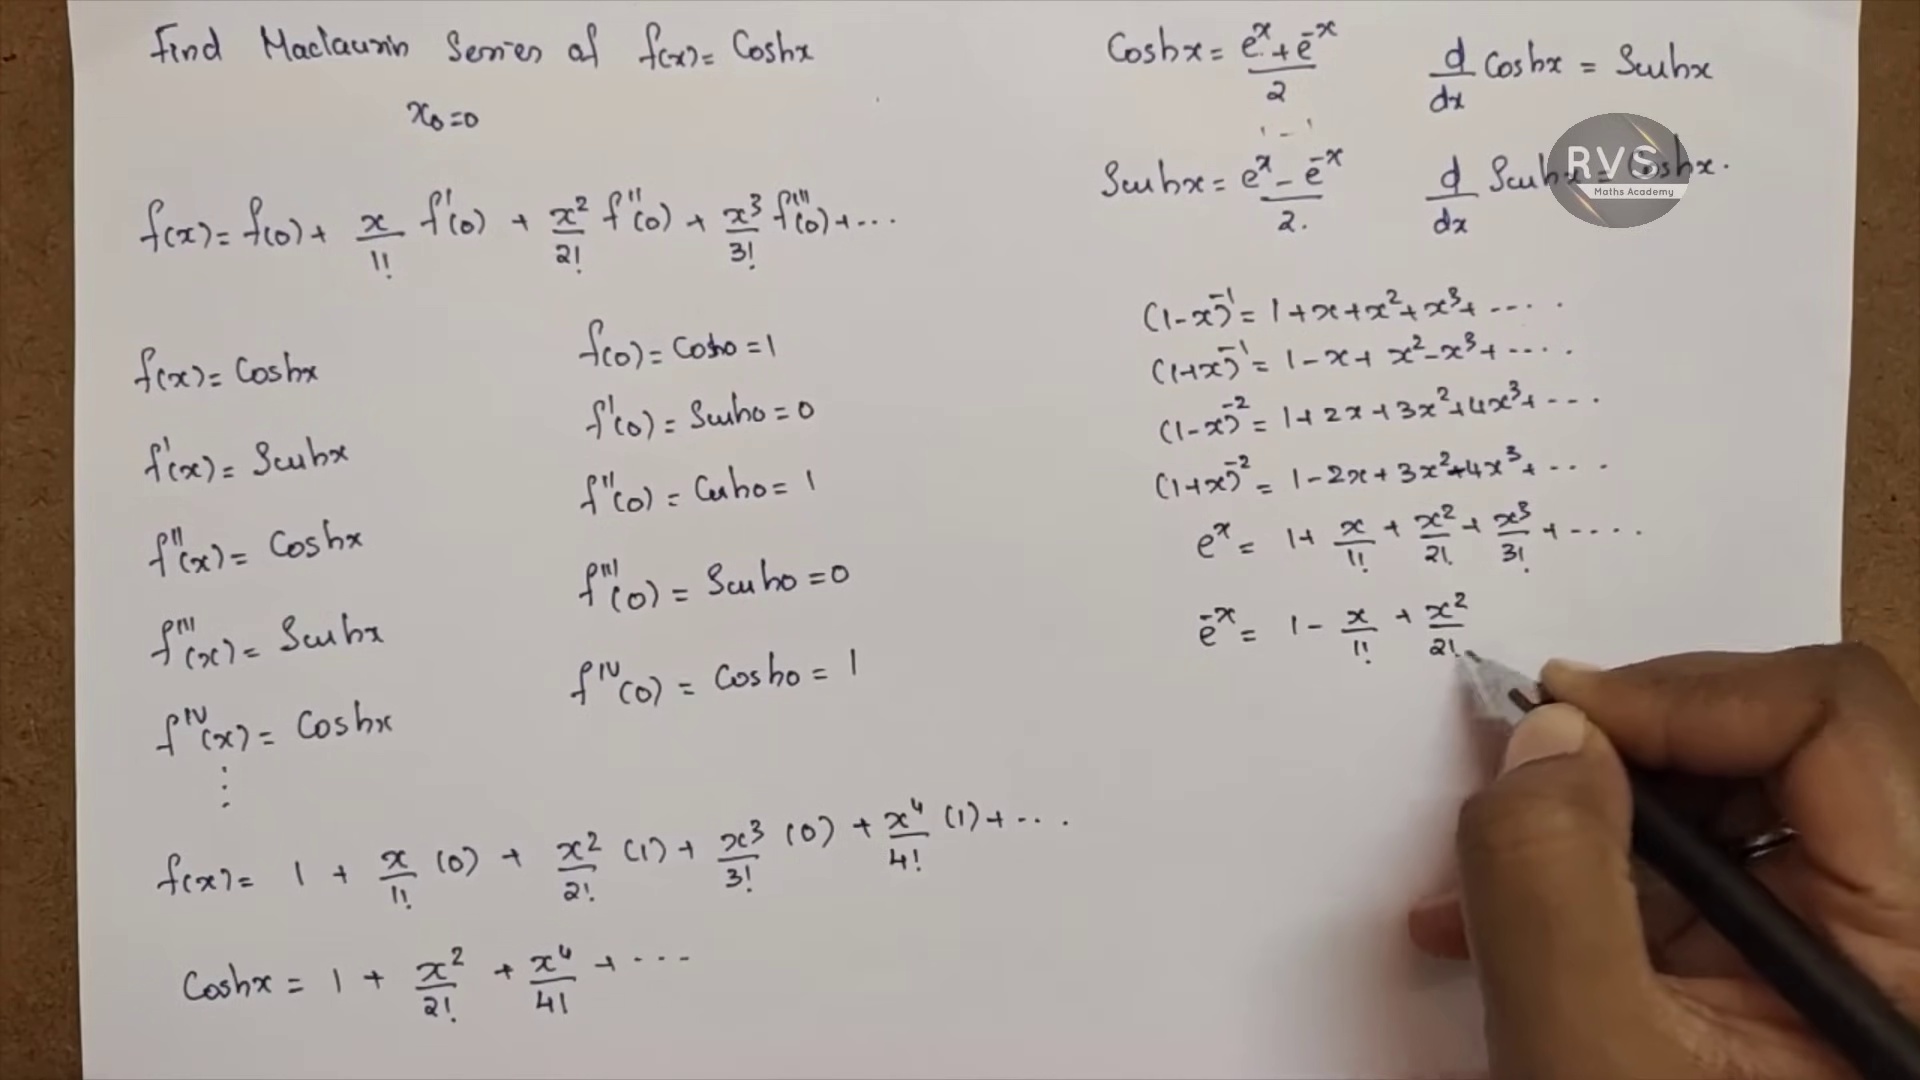 Find Maclaurin Series of f(x) = Coshx
x₀=0
f(x) = f(0) + x/1! f'(0) + x²/2! f''(0) + x³/3! f'''(0) + ...
f(x) = Coshx
f(0) = Cosh0 = 1
f'(x) = Sinhx
f'(0) = Sinh0 = 0
f''(x) = Coshx
f''(0) = Cosh0 = 1
f'''(x) = Sinhx
f'''(0) = Sinh0 = 0
f^IV(x) = Coshx
f^IV(0) = Cosh0 = 1
⋮
f(x) = 1 + x/1! (0) + x²/2! (1) + x³/3! (0) + x⁴/4! (1) + ...
Coshx = 1 + x²/2! + x⁴/4! + ...
Coshx = (e^x + e^-x)/2
d/dx Coshx = Sinhx
Sinhx = (e^x - e^-x)/2.
d/dx Sinhx = Coshx.
RVS
Maths Academy
(1-x)^-1 = 1+x+x²+x³+ ....
(1+x)^-1 = 1-x+x²-x³+ ....
(1-x)^-2 = 1+2x+3x²+4x³+ ...
(1+x)^-2 = 1-2x+3x²-4x³+ ....
e^x = 1+ x/1! + x²/2! + x³/3! + ....
e^-x = 1 - x/1! + x²/2!